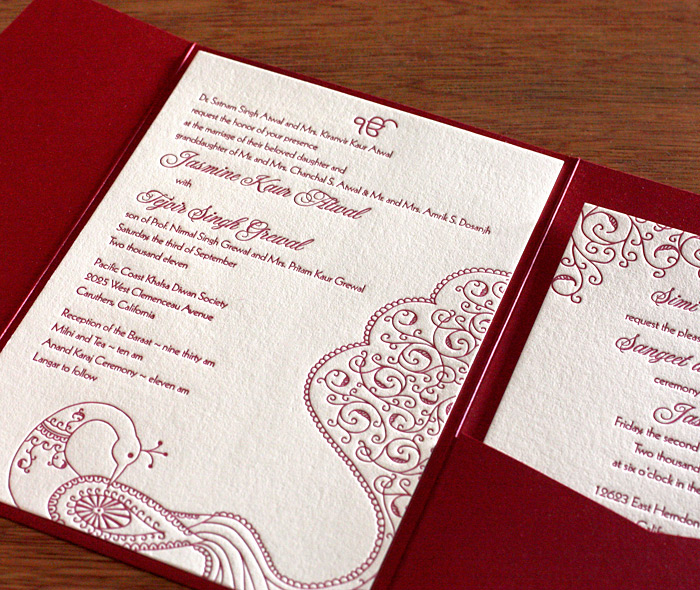 ੴ
Dr. Satnam Singh Atwal and Mrs. Kiranvir Kaur Atwal
request the honor of your presence
at the marriage of their beloved daughter and
granddaughter of Mr. and Mrs. Chanchal S. Atwal & Mr. and Mrs. Amrik S. Dosanjh
Jasmine Kaur Atwal
with
Tejvir Singh Grewal
son of Prof. Nirmal Singh Grewal and Mrs. Pritam Kaur Grewal
Saturday the third of September
Two thousand eleven
Pacific Coast Khalsa Diwan Society
2025 West Clemenceau Avenue
Caruthers, California
Reception of the Baraat ~ nine thirty am
Milni and Tea ~ ten am
Anand Karaj Ceremony ~ eleven am
Langar to follow
request the
Sangeet
ceremony
Friday the second
Two thousand
at six o'clock in
12623 East